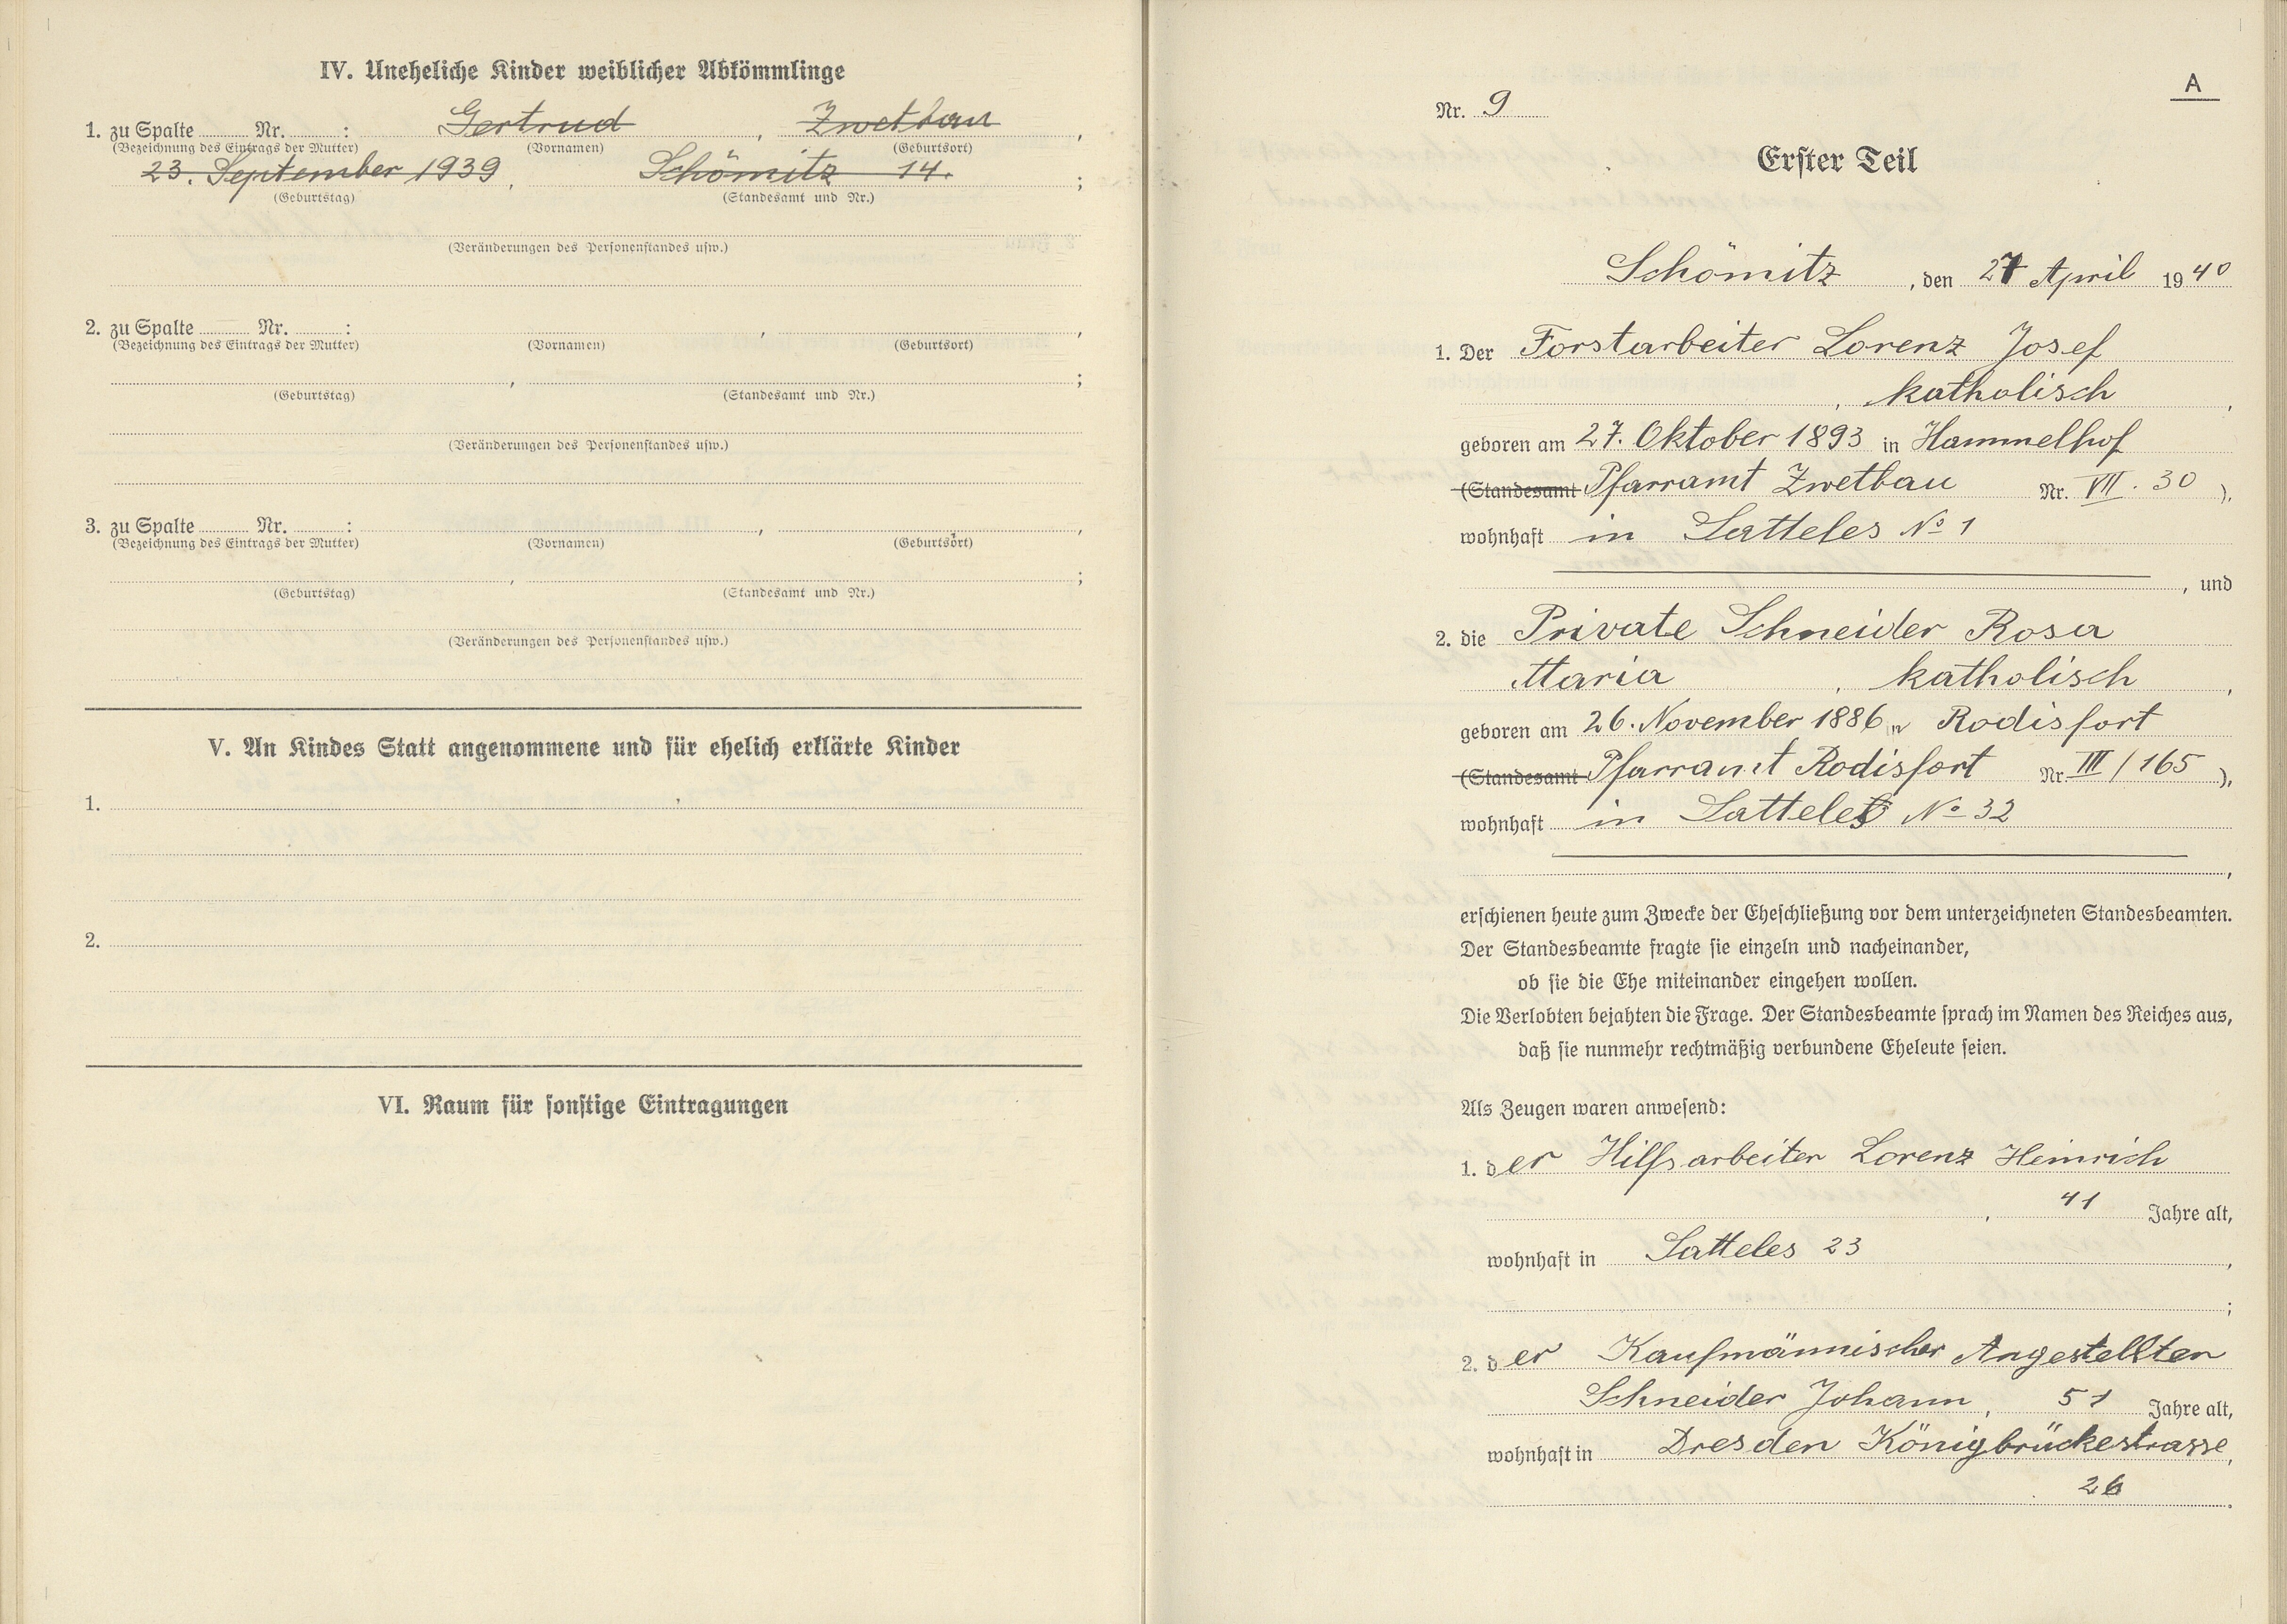 IV. Uneheliche Kinder weiblicher Abkömmlinge
1. zu Spalte Nr. : Gertrud , Zwetbau ,
(Bezeichnung des Eintrags der Mutter) (Vornamen) (Geburtsort)
23. September 1939 , Schömitz 14. ;
(Geburtstag) (Standesamt und Nr.)
(Veränderungen des Personenstandes usw.)
2. zu Spalte Nr. : , ,
(Bezeichnung des Eintrags der Mutter) (Vornamen) (Geburtsort)
, ;
(Geburtstag) (Standesamt und Nr.)
(Veränderungen des Personenstandes usw.)
3. zu Spalte Nr. : , ,
(Bezeichnung des Eintrags der Mutter) (Vornamen) (Geburtsort)
, ;
(Geburtstag) (Standesamt und Nr.)
(Veränderungen des Personenstandes usw.)
V. An Kindes Statt angenommene und für ehelich erklärte Kinder
1.
2.
VI. Raum für sonstige Eintragungen
A
Nr. 9
Erster Teil
Schömitz , den 27 April 1940
1. Der Forstarbeiter Lorenz Josef
, katholisch ,
geboren am 27. Oktober 1893 in Hammelhof
(Standesamt Pfarramt Zwetbau Nr. VII. 30 ),
wohnhaft in Satteles No 1
, und
2. die Private Schneider Rosa
Maria , katholisch ,
geboren am 26. November 1886 in Rodisfort
(Standesamt Pfarramt Rodisfort Nr. III / 165 ),
wohnhaft in Satteles No 32
,
erschienen heute zum Zwecke der Eheschließung vor dem unterzeichneten Standesbeamten.
Der Standesbeamte fragte sie einzeln und nacheinander,
ob sie die Ehe miteinander eingehen wollen.
Die Verlobten bejahten die Frage. Der Standesbeamte sprach im Namen des Reiches aus,
daß sie nunmehr rechtmäßig verbundene Eheleute seien.
Als Zeugen waren anwesend:
1. der Hilfsarbeiter Lorenz Heinrich
, 41 Jahre alt,
wohnhaft in Satteles 23 ,
;
2. der Kaufmännischer Angestellten
Schneider Johann , 51 Jahre alt,
wohnhaft in Dresden Königbrückestrasse,
26 .